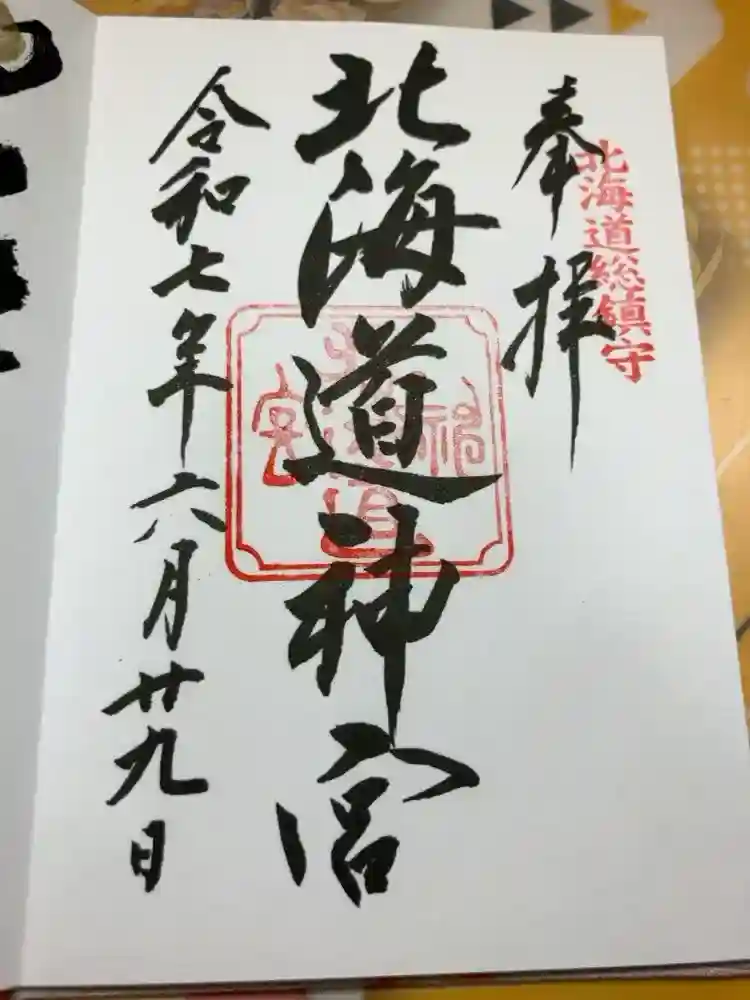 奉拝
北海道総鎮守
北海道神宮
令和七年六月廿九日